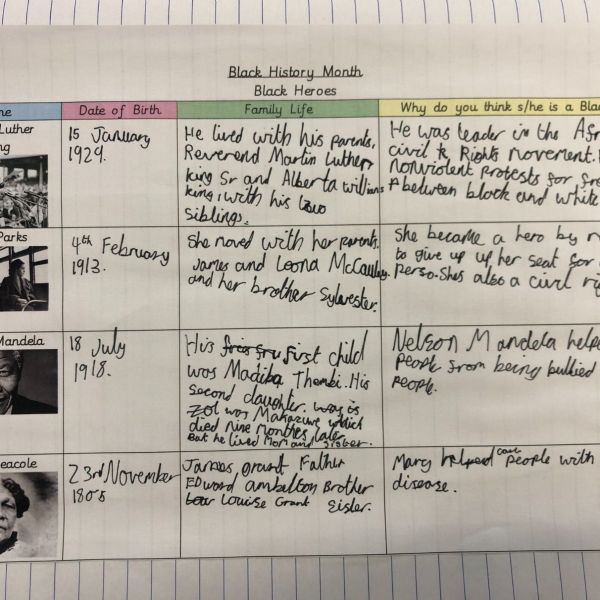 Black History Month
Black Heroes
me Date of Birth Family Life Why do you think s/he is a Bla
Luther
ng
15 January
1929.
He lived with his parents,
Reverend Martin Luther
King Sr and Alberta williams
King, with his two
siblings.
He was leader in the Afr
civil Rights movement.
nonviolent protests for fre
between black and white
Parks
4th February
1913.
She moved with her parents.
James and Leona McCauley
and her brother Sylvester.
She became a hero by r
to give up up her seat for
perso. Shes also a civil rig
Mandela
18 July
1918.
His first child
was Madiba Thembi. His
second daughter. was is
was Makaziwe which
died nine months later.
But he lived Mom and sister.
Nelson Mandela helpe
people from being bullied
people.
eacole
23rd November
1805
James, grant Father
Edward ambelton Brother
Louise Grant Sister.
Mary helped people with
disease.